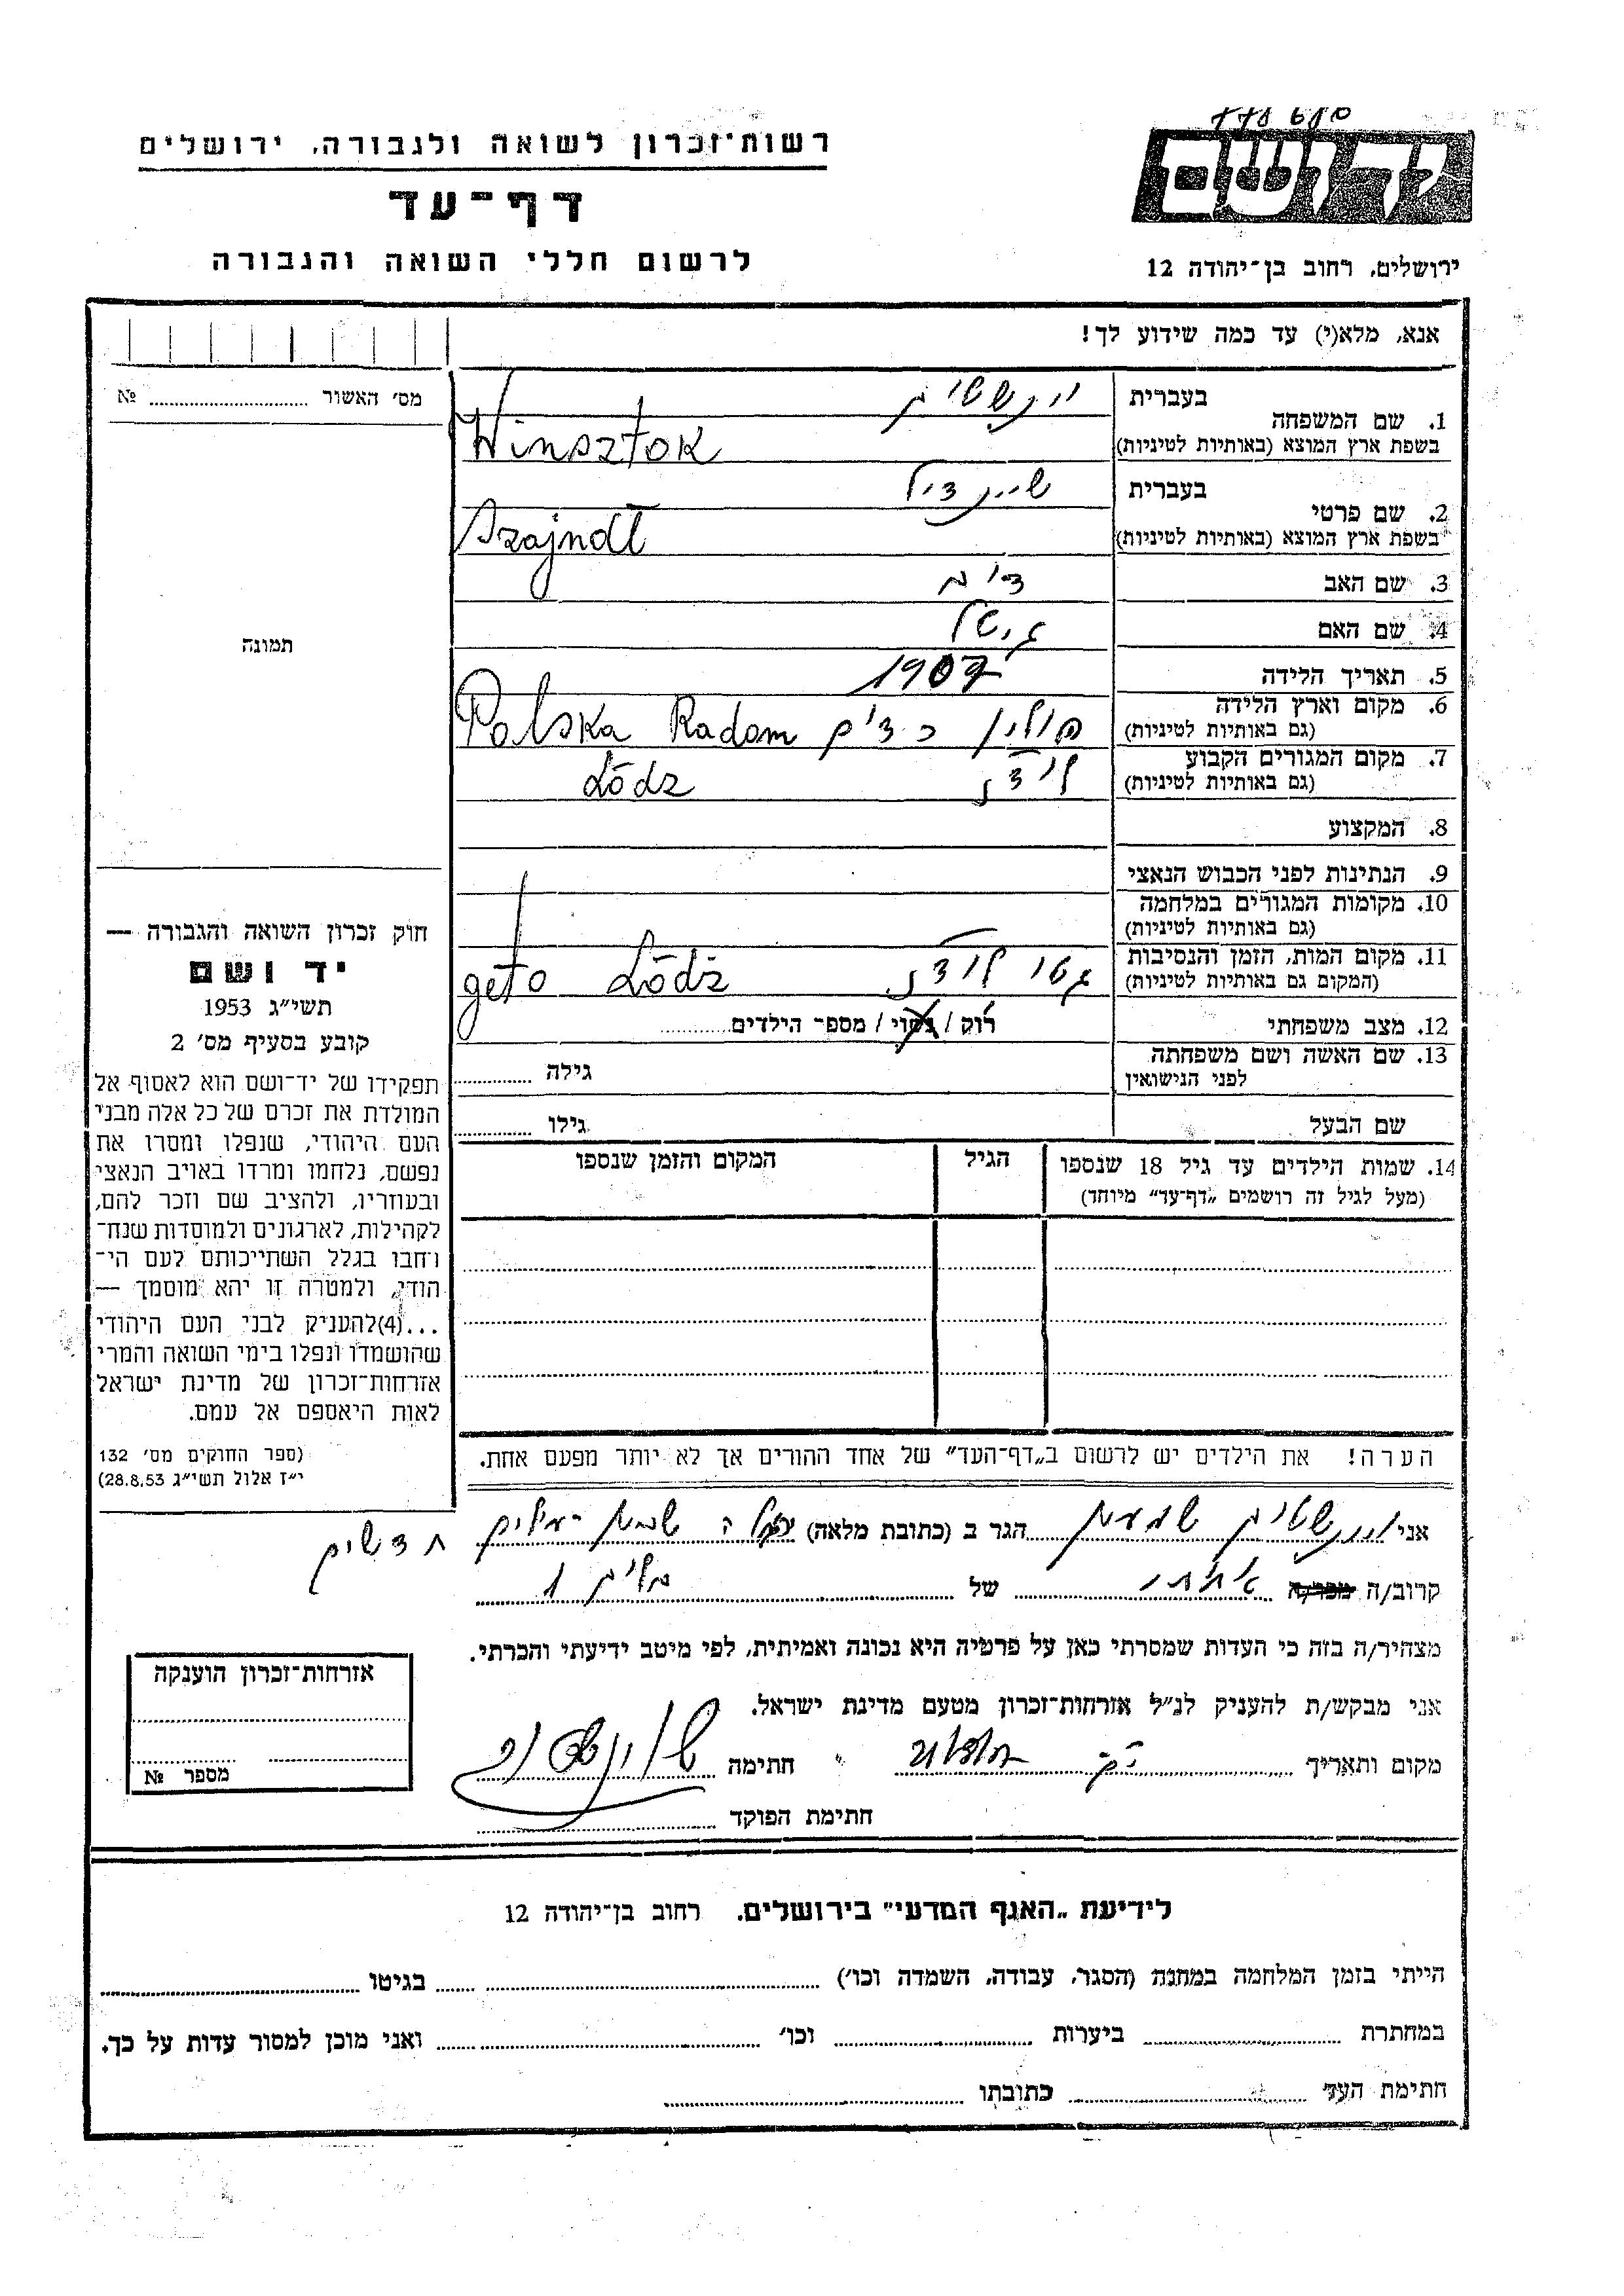 רשות־זכרון לשואה ולגבורה, ירושלים
דף־עד
לרשום חללי השואה והגבורה
יד ושם
ירושלים, רחוב בן־יהודה 12
אנא, מלא(י) עד כמה שידוע לך!
מס׳ האשור № 
תמונה
חוק זכרון השואה והגבורה —
יד ושם
תשי״ג 1953
קובע בסעיף מס׳ 2
תפקידו של יד־ושם הוא לאסוף אל
המולדת את זכרם של כל אלה מבני
העם היהודי, שנפלו ומסרו את
נפשם, נלחמו ומרדו באויב הנאצי
ובעוזריו, ולהציב שם וזכר להם,
לקהילות, לארגונים ולמוסדות שנח־
רחבו בגלל השתייכותם לעם הי־
הודי, ולמטרה זו יהא מוסמך —
...(4)להעניק לבני העם היהודי
שהושמדו ונפלו בימי השואה והמרי
אזרחות־זכרון של מדינת ישראל
לאות היאספם אל עמם.
(ספר החוקים מס׳ 132
י״ז אלול תשי״ג 28.8.53)
1. שם המשפחה בעברית
בשפת ארץ המוצא (באותיות לטיניות) Winsztok
2. שם פרטי בעברית שיינדיל
בשפת ארץ המוצא (באותיות לטיניות) Szajndl
3. שם האב חיים
4. שם האם גיטל
5. תאריך הלידה 1907
6. מקום וארץ הלידה
(גם באותיות לטיניות) פולין רדום Polska Radom
7. מקום המגורים הקבוע
(גם באותיות לטיניות) לודז Łódz
8. המקצוע
9. הנתינות לפני הכבוש הנאצי
10. מקומות המגורים במלחמה
(גם באותיות לטיניות)
11. מקום המות, הזמן והנסיבות
(המקום גם באותיות לטיניות) גטו לודז geto Łódż
12. מצב משפחתי רוק / נשוי / מספר הילדים
13. שם האשה ושם משפחתה
לפני הנישואין גילה
שם הבעל גילו
14. שמות הילדים עד גיל 18 שנספו הגיל המקום והזמן שנספו
(מעל לגיל זה רושמים „דף־עד״ מיוחד)
הערה! את הילדים יש לרשום ב„דף־העד״ של אחד ההורים אך לא יותר מפעם אחת.
אני הגר ב (כתובת מלאה)
קרוב/ה מכר/ה של
מצהיר/ה בזה כי העדות שמסרתי כאן על פרטיה היא נכונה ואמיתית, לפי מיטב ידיעתי והכרתי.
אני מבקש/ת להעניק לנ״ל אזרחות־זכרון מטעם מדינת ישראל.
מקום ותאריך חתימה
חתימת הפוקד
אזרחות־זכרון הוענקה
מספר №
לידיעת „האגף המדעי״ בירושלים, רחוב בן־יהודה 12
הייתי בזמן המלחמה במחנה (הסגר, עבודה, השמדה וכו׳) בגיטו
במחתרת ביערות וכו׳ ואני מוכן למסור עדות על כך.
חתימת העד כתובתו